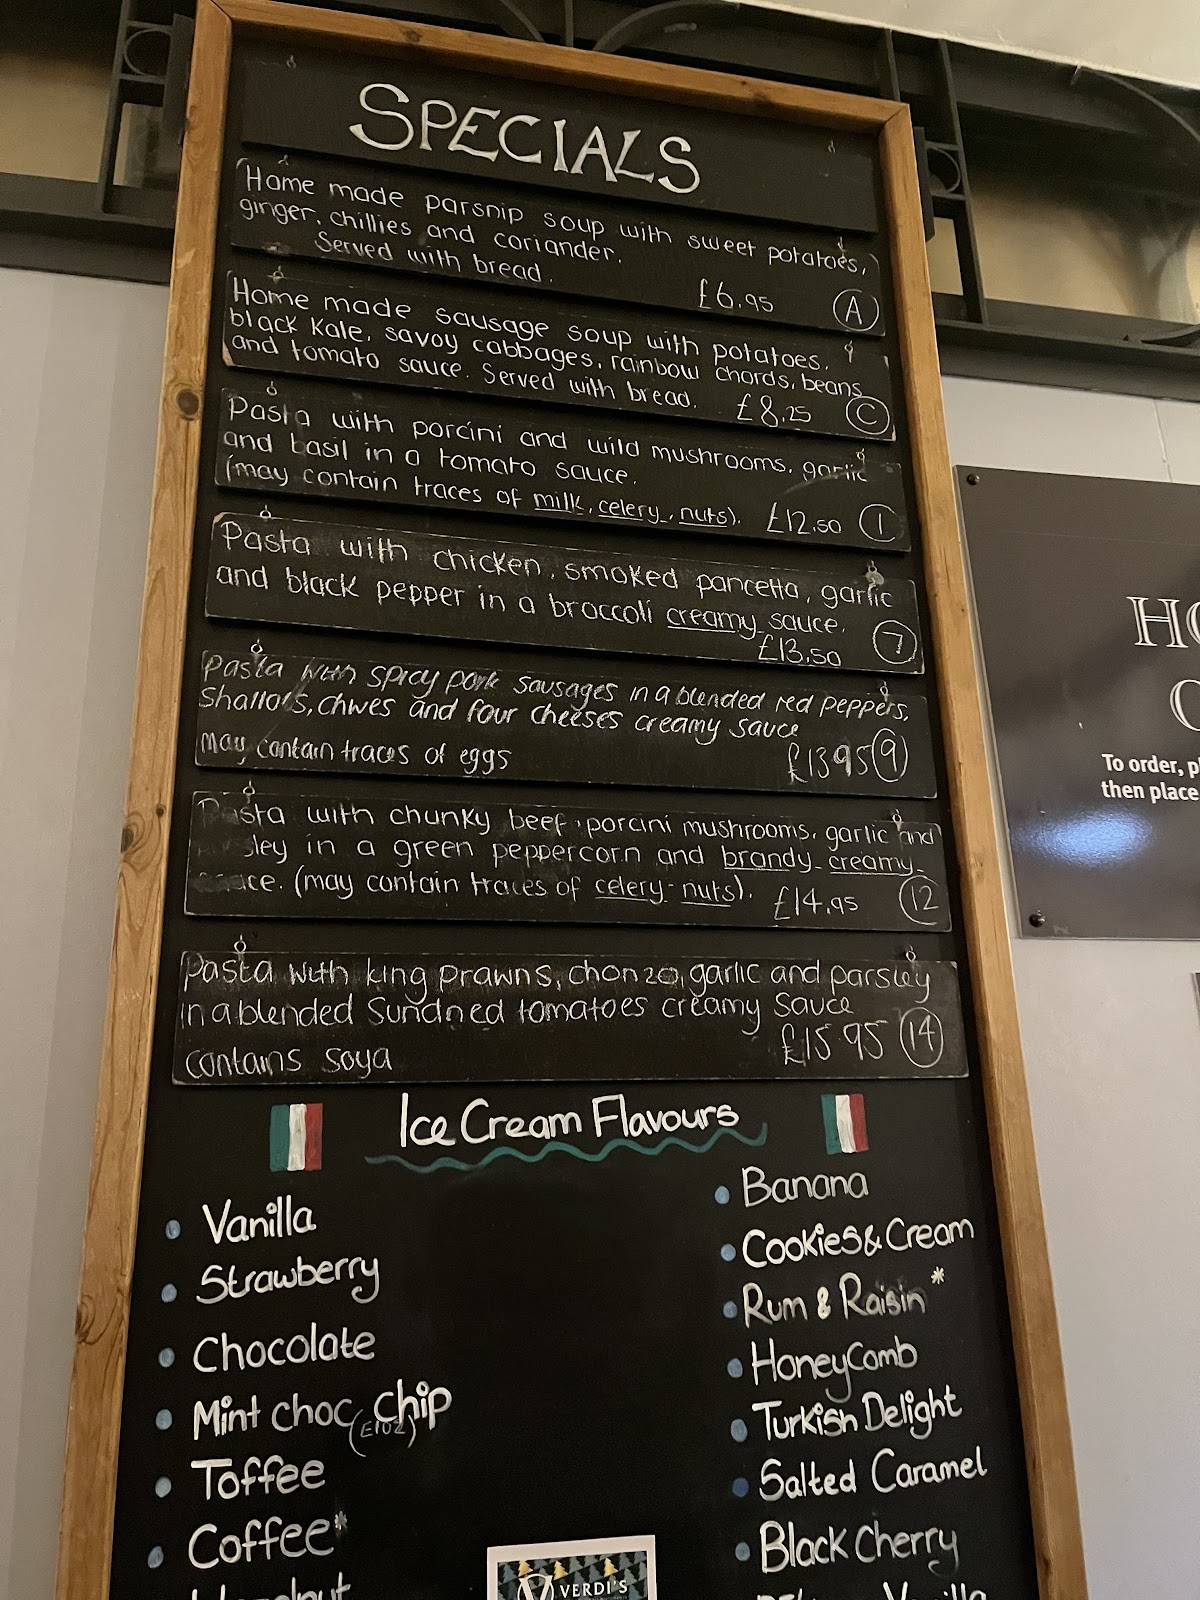 SPECIALS
Home made parsnip soup with sweet potatoes,
ginger, chillies and coriander.
Served with bread.
£6.95 A
Home made sausage soup with potatoes,
black kale, savoy cabbages, rainbow chards, beans
and tomato sauce. Served with bread. £8.25 C
Pasta with porcini and wild mushrooms, garlic
and basil in a tomato sauce.
(may contain traces of milk, celery, nuts). £12.50 1
Pasta with chicken, smoked pancetta, garlic
and black pepper in a broccoli creamy sauce.
£13.50 7
Pasta with spicy pork sausages in a blended red peppers,
Shallots, chives and four cheeses creamy sauce
may contain traces of eggs £13 95 9
Pasta with chunky beef, porcini mushrooms, garlic and
sley in a green peppercorn and brandy creamy
ce. (may contain traces of celery - nuts). £14.95 12
Pasta with king prawns, chorizo, garlic and parsley
in a blended Sundried tomatoes creamy Sauce
£15 95 14
contains soya
Ice Cream Flavours
Vanilla
Strawberry
Chocolate
Mint choc chip
(E102)
Toffee
Coffee*
Hazelnut
Banana
Cookies & Cream
Rum & Raisin *
HoneyComb
Turkish Delight
Salted Caramel
Black Cherry
Vanilla
VERDI'S
To order, p
then place